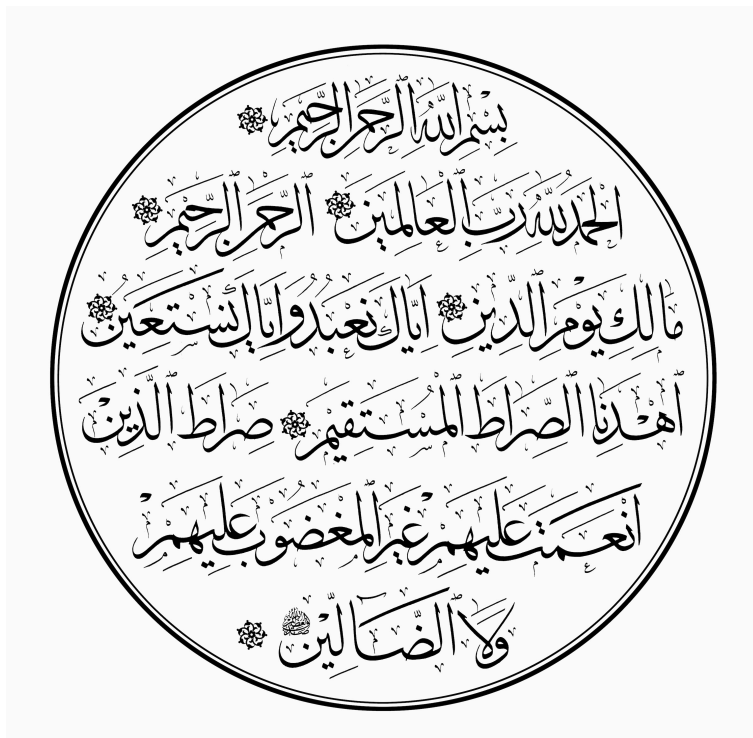 بِسْمِ اللهِ الرَّحْمٰنِ الرَّحِيْمِ
اَلْحَمْدُ لِلّٰهِ رَبِّ الْعَالَمِيْنَ الرَّحْمٰنِ الرَّحِيْمِ
مَالِكِ يَوْمِ الدِّيْنِ اِيَّاكَ نَعْبُدُ وَاِيَّاكَ نَسْتَعِيْنُ
اِهْدِنَا الصِّرَاطَ الْمُسْتَقِيْمَ صِرَاطَ الَّذِيْنَ
اَنْعَمْتَ عَلَيْهِمْ غَيْرِ الْمَغْضُوْبِ عَلَيْهِمْ
وَلَا الضَّآلِّيْنَ